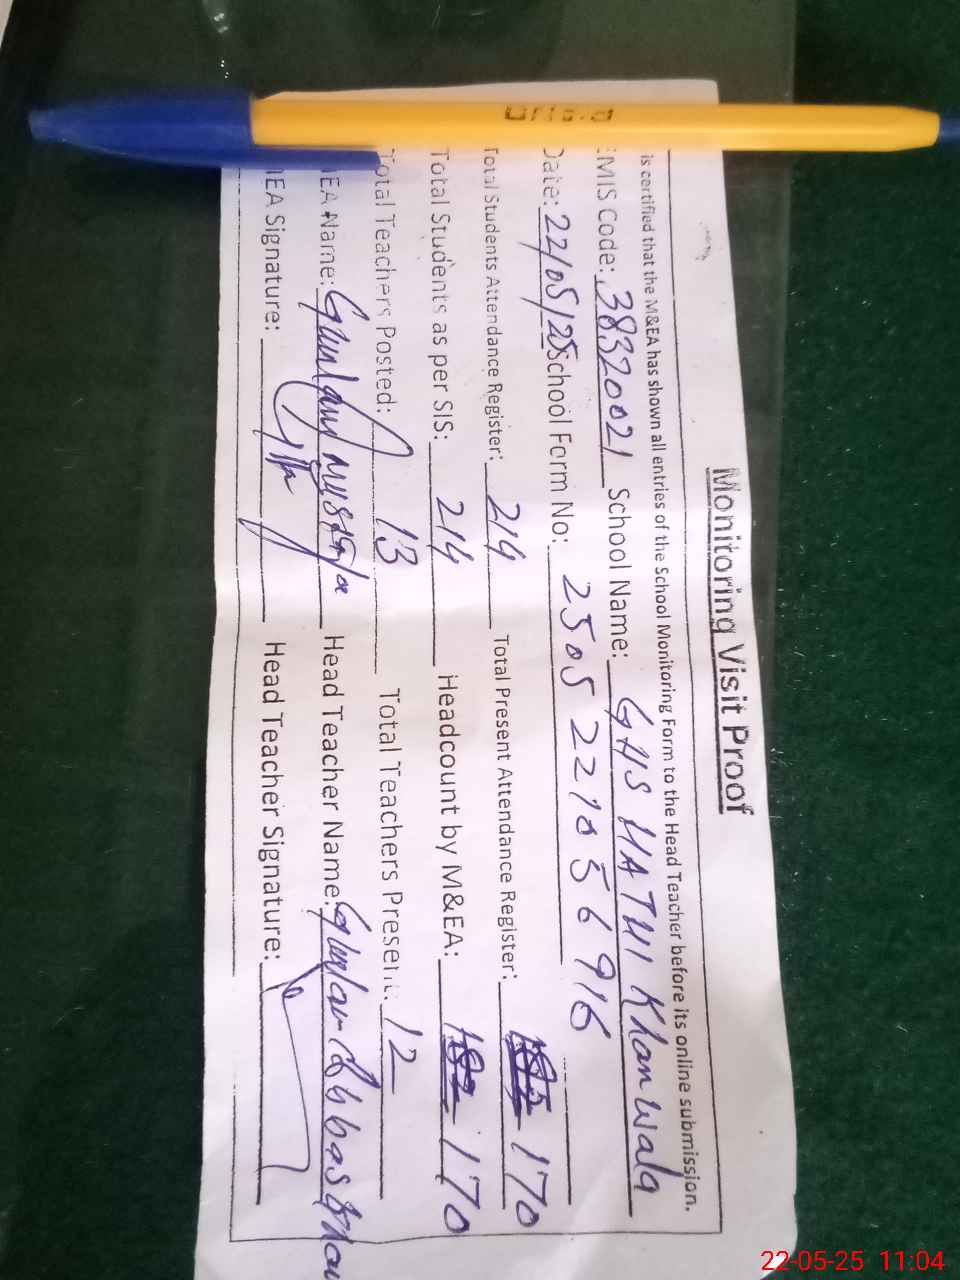 Monitoring Visit Proof
is certified that the M&EA has shown all entries of the School Monitoring Form to the Head Teacher before its online submission.
EMIS Code: 38320021 School Name: GHS HATHI Khan wala
Date: 22/05/25 School Form No: 2505221056916
Total Students Attendance Register: 214 Total Present Attendance Register: 170
Total Students as per SIS: 214 Headcount by M&EA: 170
Total Teachers Posted: 13 Total Teachers Present: 12
EA Name: Head Teacher Name: Ghulam Abbas Khan
EA Signature: Head Teacher Signature:
22-05-25 11:04